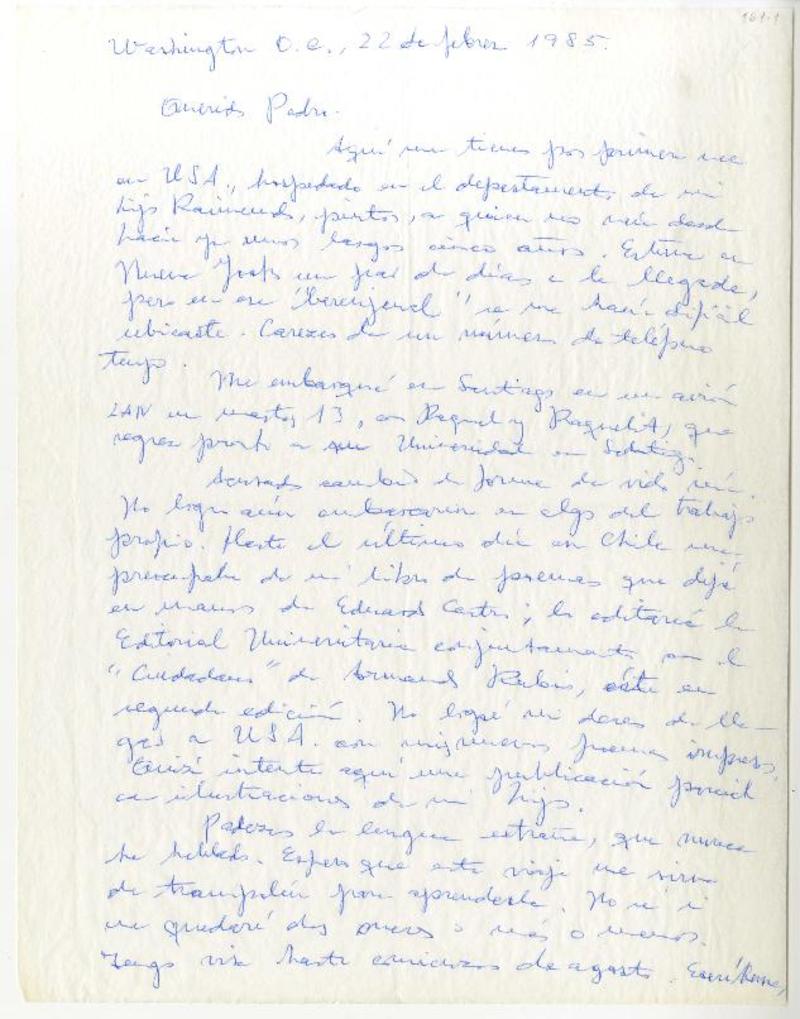 161-1
Washington D.C., 22 de febrero 1985.
Querido Pedro.
Aquí me tienes por primera vez
en USA., hospedado en el departamento de mi
hijo Raimundo, pintor, a quien no veía desde
hacía ya unos largos cinco años. Estuve en
Nueva York un par de días a la llegada,
pero en ese "berenjenal" se me hacía difícil
ubicarte. Carezco de un número de teléfono
tuyo.
Me embarqué en Santiago en un avión
LAN en martes 13, con Raquel y Raquelita, que
regresa pronto a su Universidad en Santiago.
cambio de forma de vida
No logro aún embarcarme en algo del trabajo
propio. Hasta el último día en Chile me
preocupaba de mi libro de poemas que dejé
en manos de Eduardo Castro; lo editaría la
Editorial Universitaria conjuntamente con el
"Ciudadano" de Armando Rubio, éste en
segunda edición. No logré mi deseo de lle-
gar a USA. con mis nuevos poemas impresos.
Quizá intente aquí una publicación parcial
con ilustraciones de mi hijo.
Padezco la lengua extraña, que nunca
he hablado. Espero que este viaje me sirva
de trampolín para aprenderla. No sé si
me quedaré dos meses o más o menos.
Tengo visa hasta comienzos de agosto. Escríbeme,